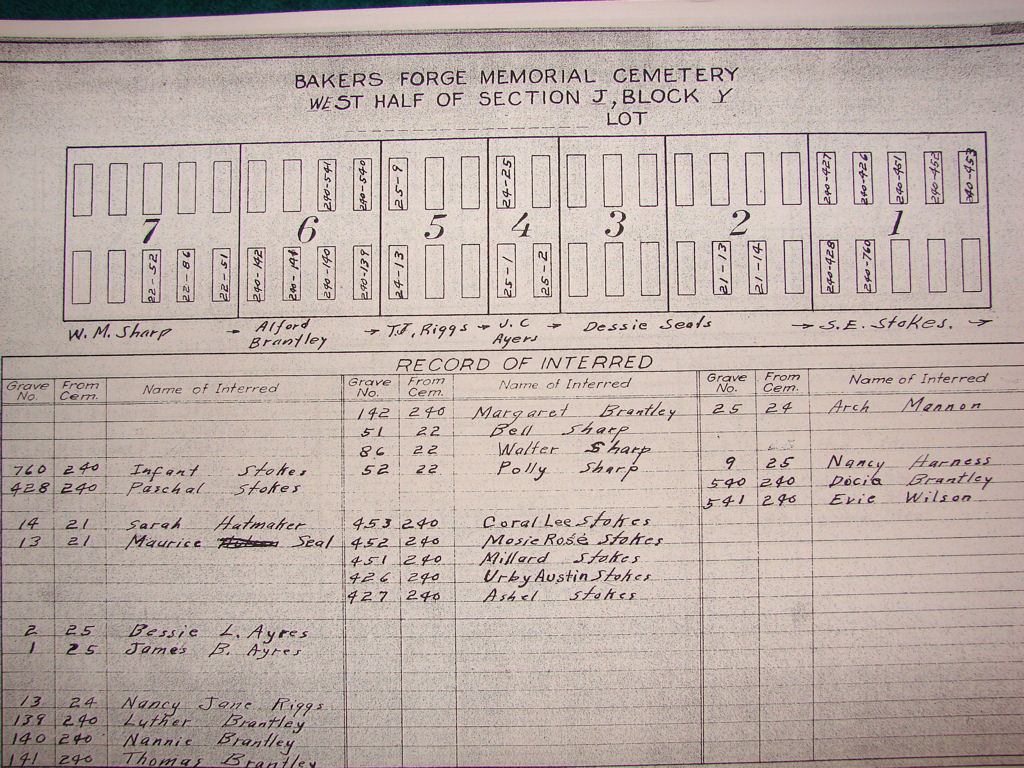 BAKERS FORGE MEMORIAL CEMETERY
WEST HALF OF SECTION J, BLOCK Y
LOT
240-541 240-540 25-9 24-25 240-427 240-426 240-451 240-452 240-453
7 6 5 4 3 2 1
22-52 22-86 22-51 240-142 240-141 240-140 240-139 24-13 25-1 25-2 21-13 21-14 240-428 240-760
W. M. Sharp → Alford Brantley → T.J. Riggs → J. C Ayers → Dessie Seals → S. E. Stokes. →
RECORD OF INTERRED
Grave No. From Cem. Name of Interred Grave No. From Cem. Name of Interred Grave No. From Cem. Name of Interred
142 240 Margaret Brantley 25 24 Arch Mannon
51 22 Bell Sharp
86 22 Walter Sharp
760 240 Infant Stokes 52 22 Polly Sharp 9 25 Nancy Harness
428 240 Paschal Stokes 540 240 Docia Brantley
541 240 Evie Wilson
14 21 Sarah Hatmaker 453 240 Coral Lee Stokes
13 21 Maurice Seal 452 240 Mosie Rose Stokes
451 240 Millard Stokes
426 240 Urby Austin Stokes
427 240 Ashel Stokes
2 25 Bessie L. Ayres
1 25 James B. Ayres
13 24 Nancy Jane Riggs
139 240 Luther Brantley
140 240 Nannie Brantley
141 240 Thomas Brantley